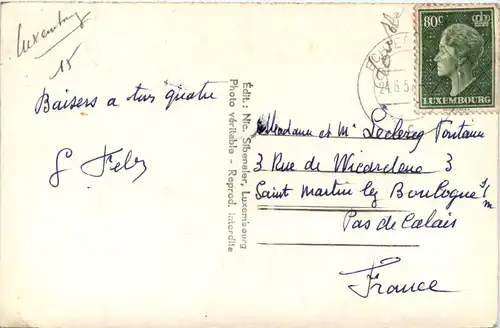 Luxembourg
15
Baisers a tous quatre
Édit.: Nic. Sibenaler, Luxembourg
Photo véritable - Reprod. interdite
80c
LUXEMBOURG
24.6.5
Madame et Mr Leclercq Fontaine
3 Rue de Wicardenne 3
Saint Martin les Boulogne s/m
Pas de Calais
France